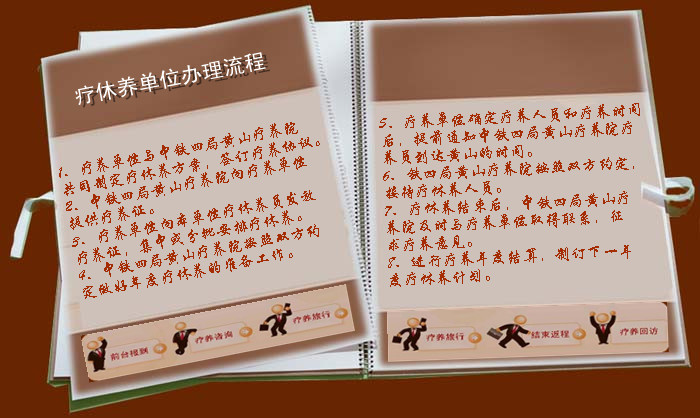 疗休养单位办理流程
1、疗养单位与中铁四局黄山疗养院
共同制定疗休养方案，签订疗养协议。
2、中铁四局黄山疗养院向疗养单位
提供疗养证。
3、疗养单位向本单位疗休养员发放
疗养证，集中或分批安排疗休养。
4、中铁四局黄山疗养院按照双方约
定做好年度疗休养的准备工作。
前台接到
疗养咨询
疗养旅行
5、疗养单位确定疗养人员和疗养时间
后，提前通知中铁四局黄山疗养院疗
养员到达黄山的时间。
6、铁四局黄山疗养院按照双方约定，
接待疗休养人员。
7、疗休养结束后，中铁四局黄山疗
养院及时与疗养单位取得联系，征
求疗养意见。
8、进行疗养年度结算，制订下一年
度疗休养计划。
疗养旅行
结束返程
疗养回访